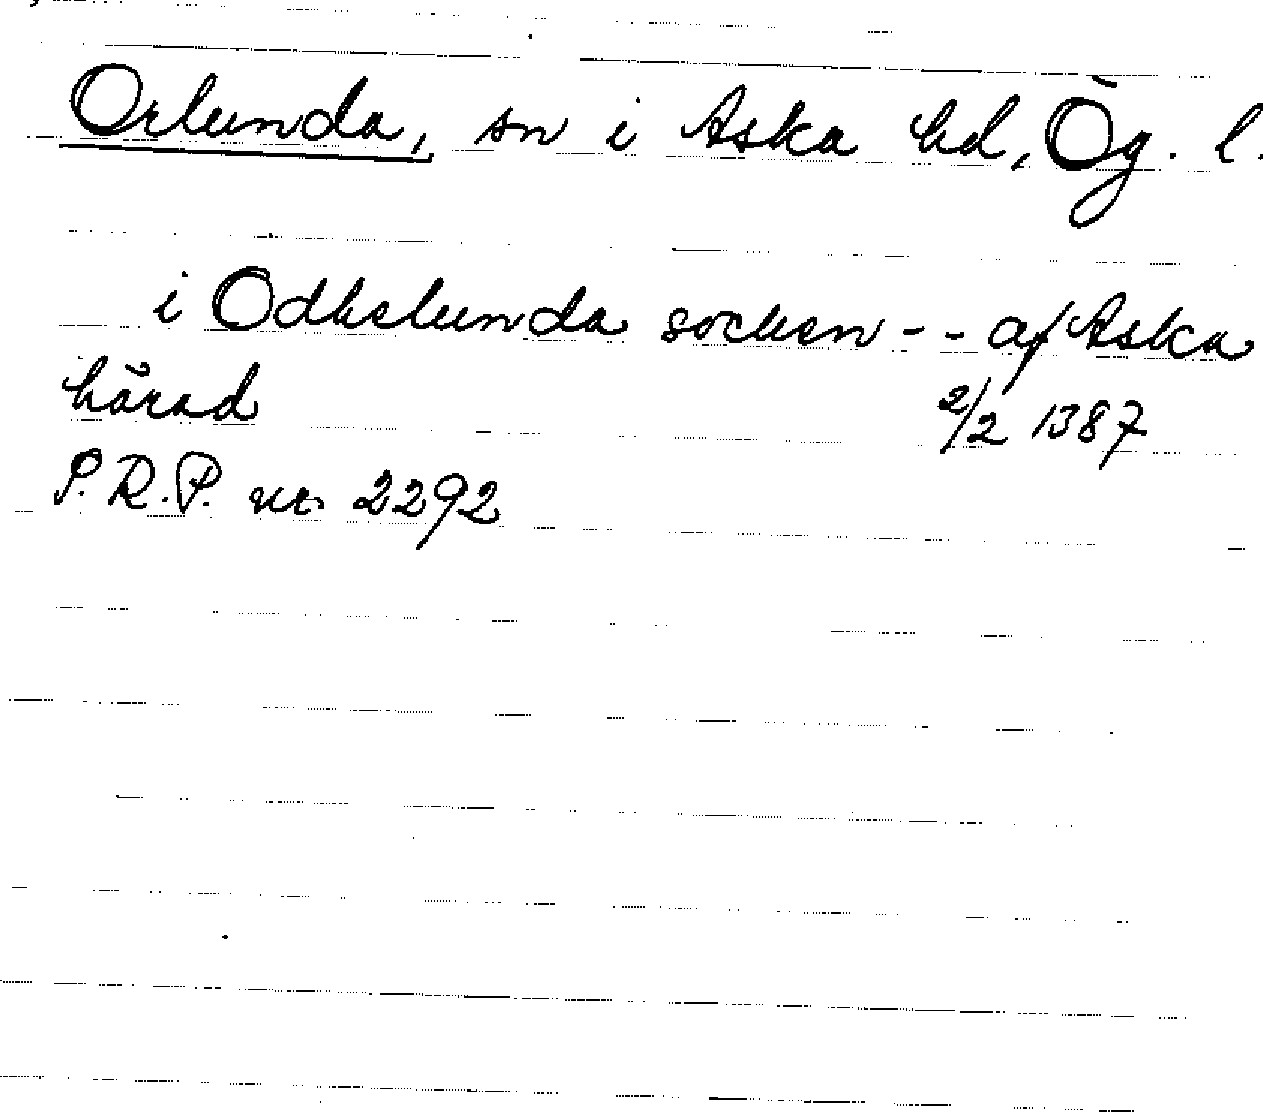 Orlunda, sn i Aska hd, Ög. l.
i Odhslunda socken - - af Aska
härad 2/2 1387
P.R.P. nr 2292